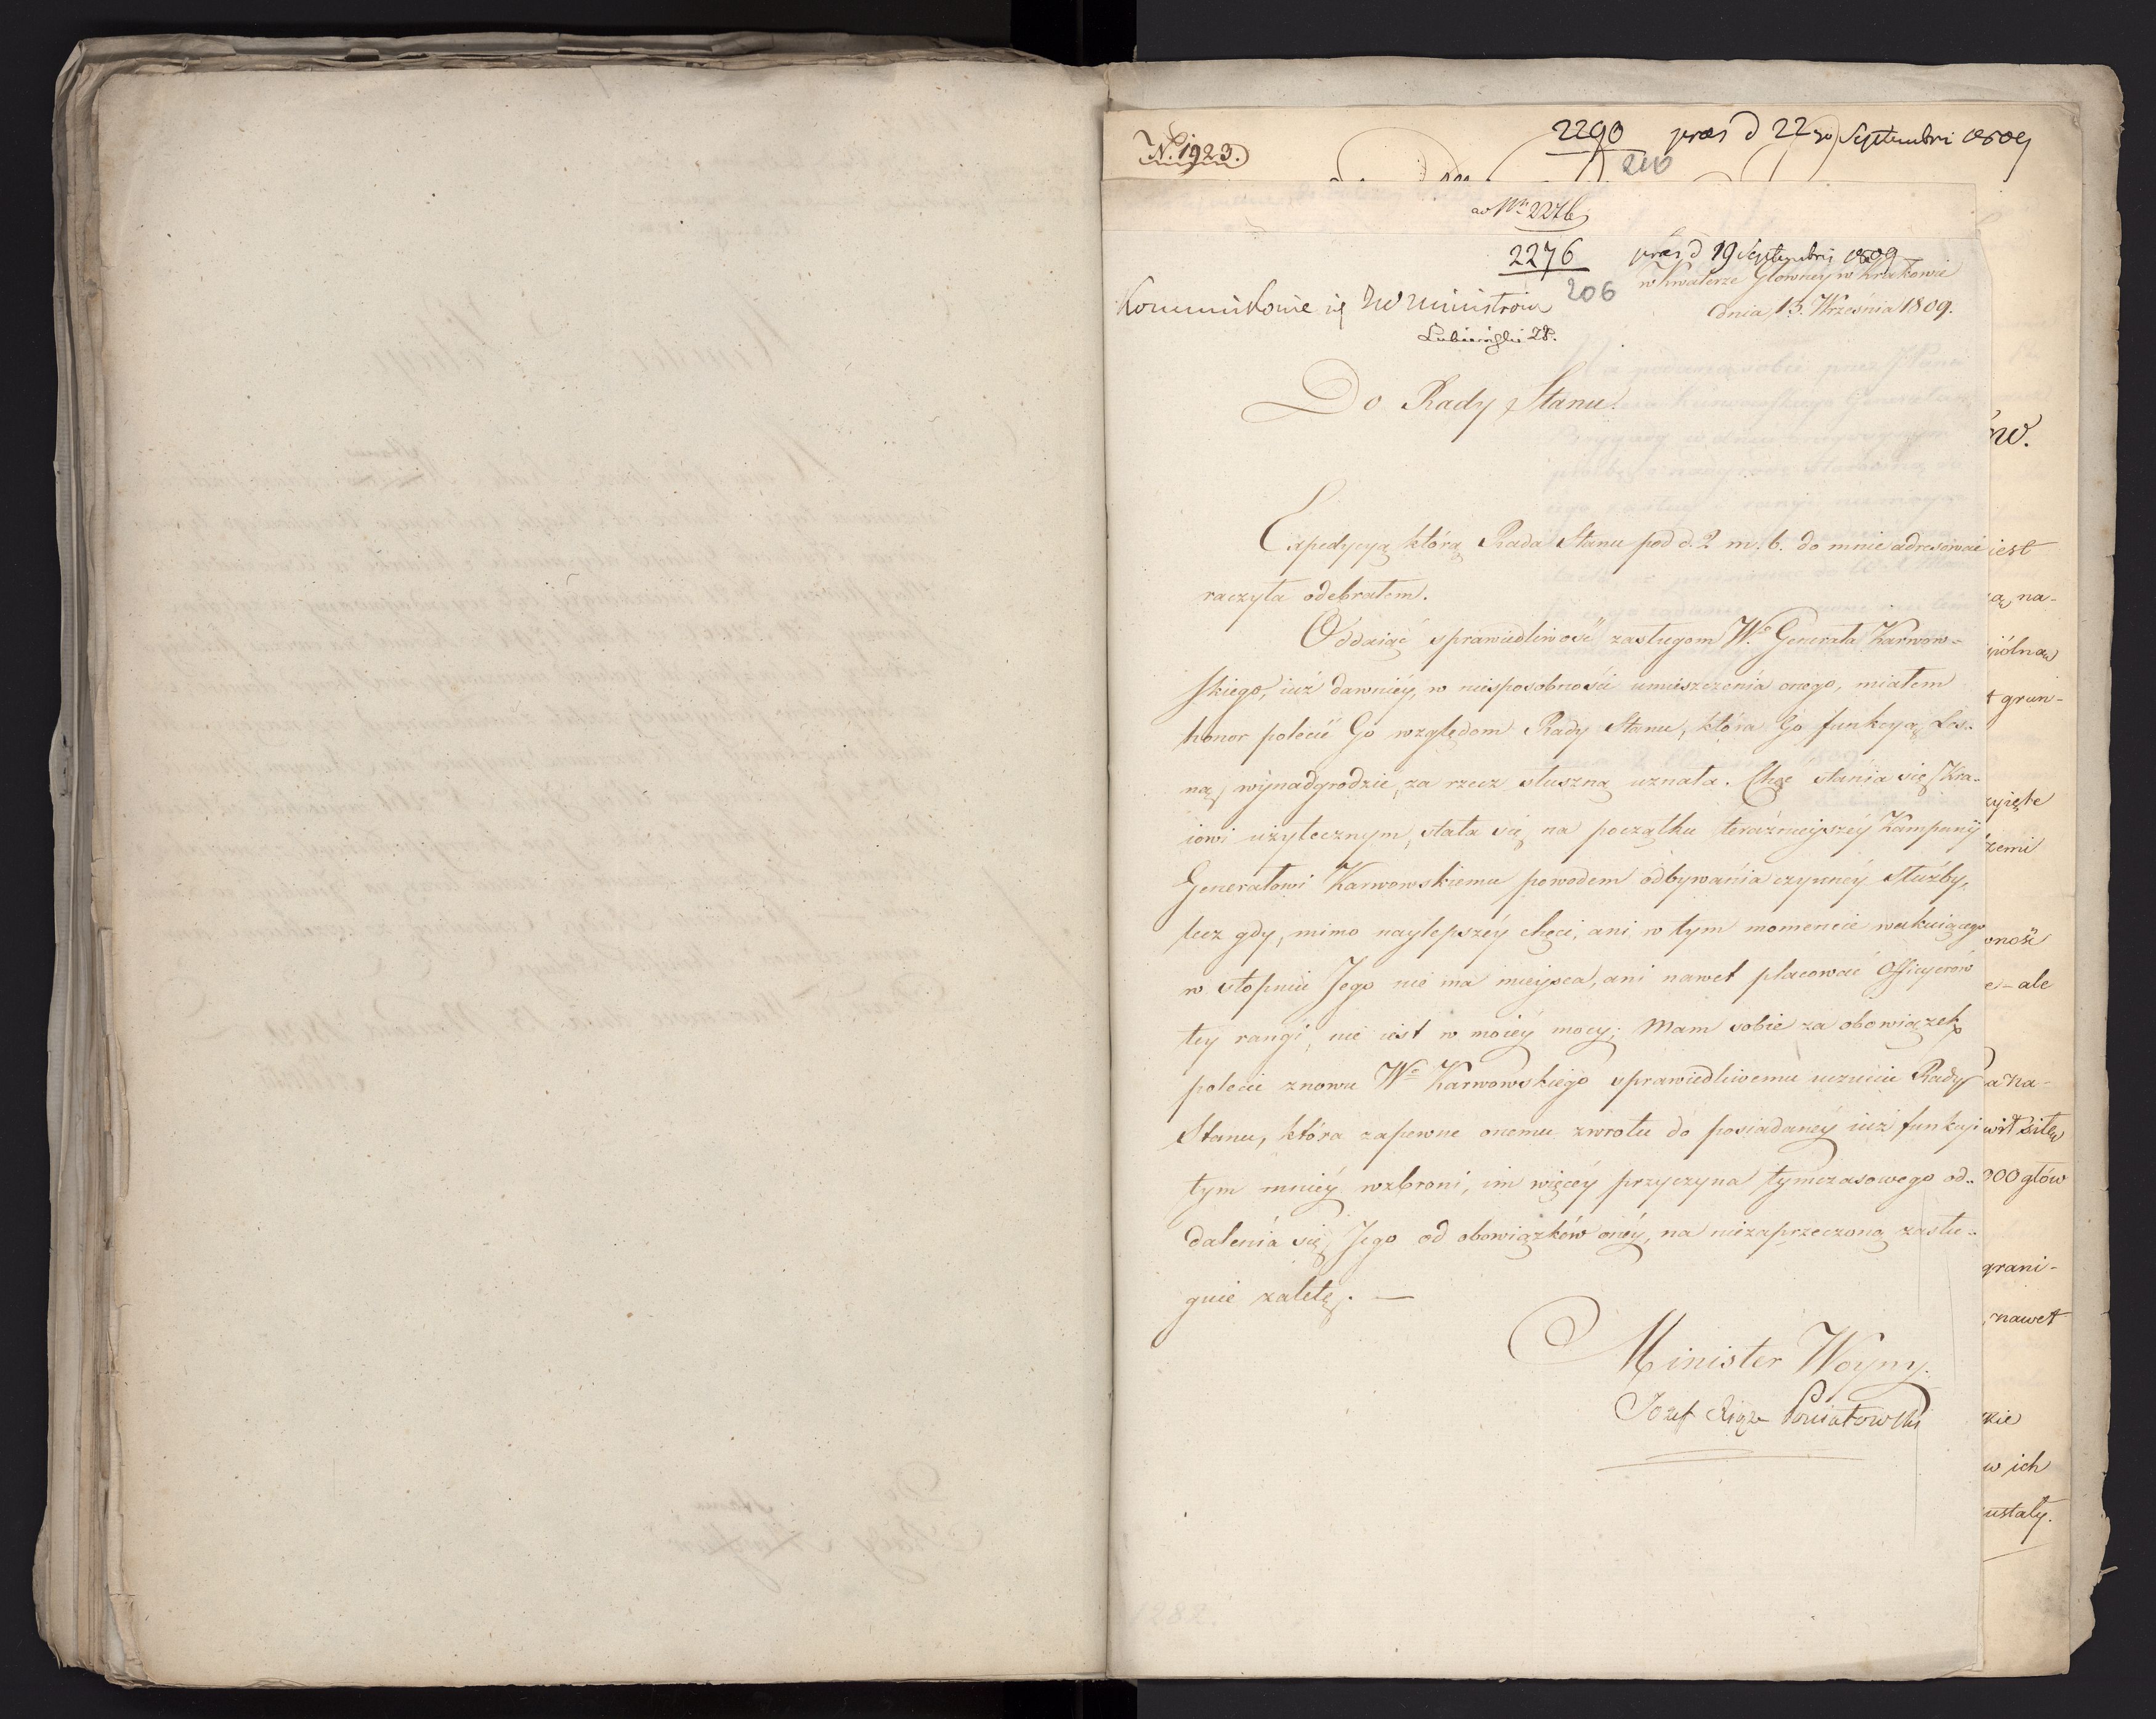 N. 1923.
2290 præs d 22 Septembri 1809
210
ad Nr 2276
2276 præs d 19 Septembris 1809
206
w Kwaterze Głowney w Krakowie
dnia 13. Września 1809.
Kommunikowie się JW Ministrowi
Lubieńskiemu
Do Rady Stanu.
Expedycyą którą Rada Stanu pod d. 2 m. b. do mnie adresować
raczyła odebrałem.
Oddaiąć sprawiedliwość zasługom Wo Generała Karwow-
skiego, iuż dawniéy, w niesposobności umieszczenia onego, miałem
honor polecić Go względom Rady Stanu, która Go funkcyą Les-
ną, wynadgrodzić, za rzecz słuszną uznała. Chęć stania się Kra-
iowi użytecznym, stała się na początku teraźnieyszéy Kampanij
Generałowi Karwowskiemu powodem odbywania czynnéy Służby,
lecz gdy, mimo naylepszéy chęci, ani w tym momencie wakuiącego
w stopniu Jego nie ma mieysca, ani nawet placować Officyerów
tey rangi, nie iest w moiéy mocy; Mam sobie za obowiązek
polecić znowu Wo Karwowskiego sprawiedliwemu uczuciu Rady
Stanu, która zapewne onemu zwrotu do posiadanéy iuż funkcyi
tym mniéy wzbroni, im więcéy przyczyna tymczasowego od-
dalenia się Jego od obowiązków onéy, na niezaprzeczoną zasłu-
guie zaletę. —
Minister Woyny.
Jozef Xiąże Poniatowski
ów.
iest
ą, na-
spólną
t grun-
zyięte
żemi
wność
e - ale
a na-
900 głów
grani-
, nawet
kie
w ich
ustały.